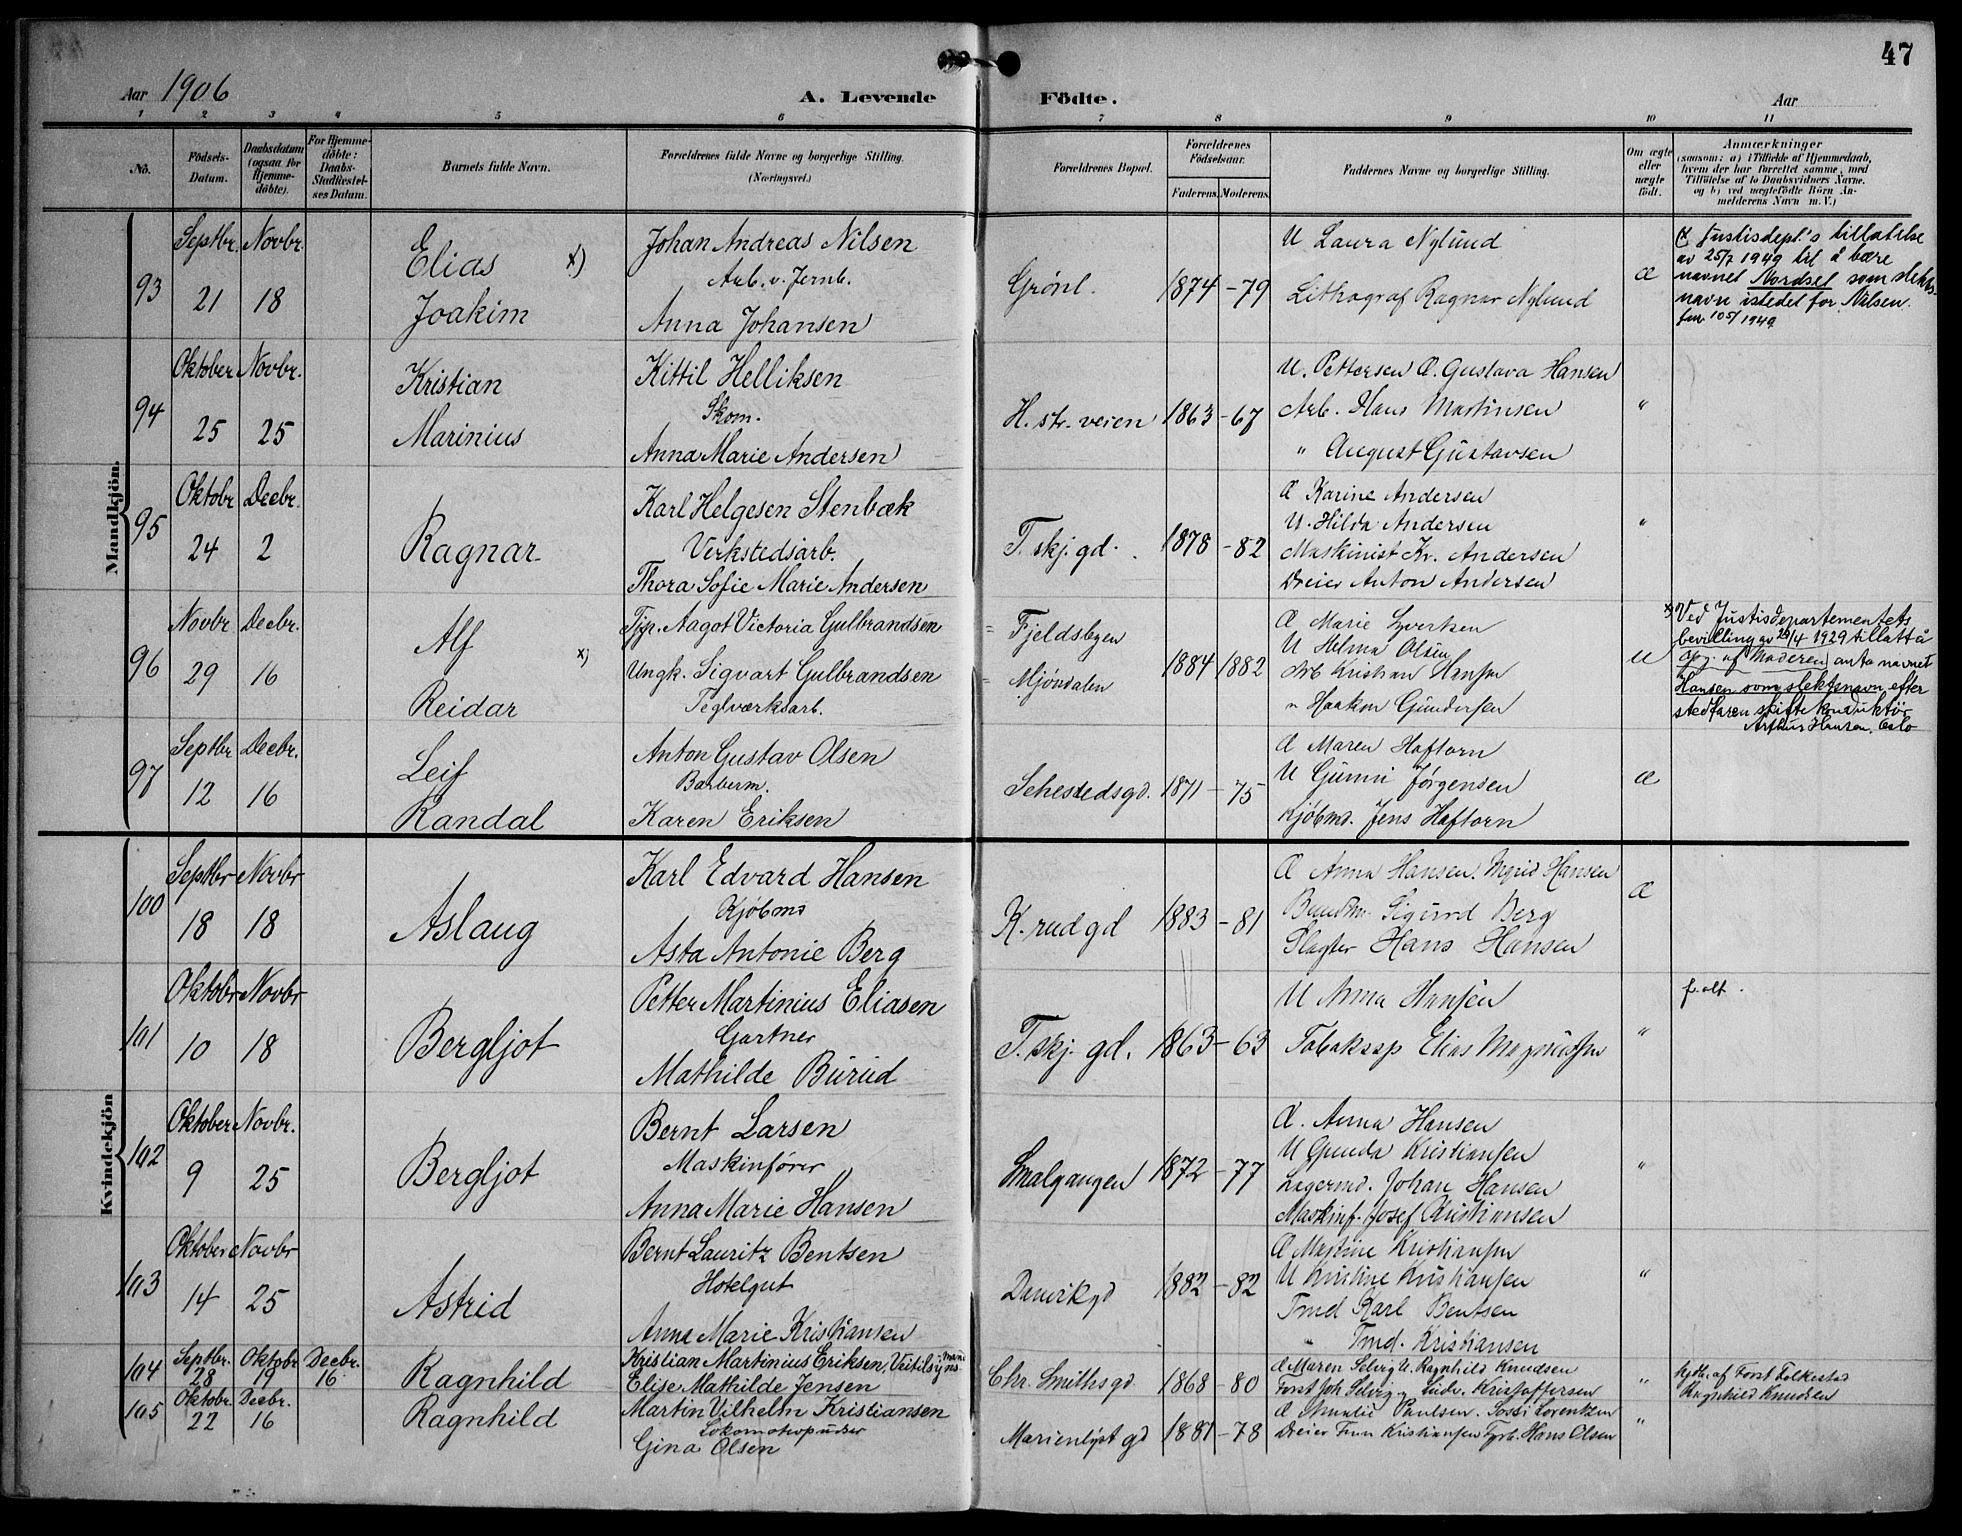 47
Aar 1906
A. Levende Födte.
Aar
1 2 3 4 5 6 7 8 9 10 11
No.
Födsels-Datum.
Daabsdatum (ogsaa for Hjemme-döbte).
For Hjemme-döbte: Daabs-Stadfæstel-ses Datum.
Barnets fulde Navn.
Forældrenes fulde Navne og borgerlige Stilling. (Næringsvei.)
Forældrenes Bopæl.
Forældrenes Födselsaar.
Faderens. Moderens.
Faddernes Navne og borgerlige Stilling.
Om ægte eller uægte födt.
Anmærkninger
(saasom: a) i Tilfælde af Hjemmedaab,
hvem der har forrettet samme, med
Tilföielse af to Daabsvidners Navne.
og b) ved uægtefödte Börn An-
melderens Navn m. V.)
Mandkjön.
93
Septbr. 21
Novbr. 18
Elias x)
Joakim
Johan Andreas Nilsen
Arb. v. Jernb.
Anna Johansen
Grønl.
1874 - 79
U Laura Nylund
Lithograf Ragnar Nylund
Æ
x) Justisdept.'s tillatelse
av 25/7 1949 til å bære
navnet Nordsel som slekts-
navn istedet for Nilsen.
1949
94
Oktober 25
Novbr. 25
Kristian
Marinius
Kittil Helliksen
Skom.
Anna Marie Andersen
H. str. veien
1863 - 67
U. Pettersen Æ. Gustava Hansen
Arb. Hans Martinsen
" August Gustavsen
"
95
Oktobr 24
Decbr. 2
Ragnar
Karl Helgesen Stenbæk
Verkstedsarb.
Thora Sofie Marie Andersen
T. skj. gd.
1878 - 82
Æ Karine Andersen
U. Hilda Andersen
Maskinist Kr. Andersen
Dreier Anton Andersen
"
96
Novbr 29
Decbr. 16
Alf x)
Reidar
Tjp. Aagot Victoria Gulbrandsen
Ungk. Sigvart Gulbrandsen
Teglværksarb.
= Fjeldsbyen
= Mjøndalen
1884 1882
Æ Marie Syvertsen
U Helma Olsen
Arb Kristian Hansen
" Haakon Gundersen
U
x) Ved Justisdepartementets
bevilling av 29/4 1929 tillatt å
opg. af Moderen anta navnet
Hansen som slektsnavn efter
stedfaren skiftekonduktør
Arthur Hansen, Oslo
97
Septbr 12
Decbr. 16
Leif
Randal
Anton Gustav Olsen
Barberm.
Karen Eriksen
Sehestedsgd.
1871 - 75
Æ Maren Haftorn
U Gunni Jørgensen
Kjøbmd. Jens Haftorn
Æ
Kvindekjön
100
Septbr 18
Novbr 18
Aslaug
Karl Edvard Hansen
Kjøbmd
Asta Antonie Berg
K. rud gd
1883 - 81
Æ Anna Hansen. Ingrid Hansen
Sigurd Berg
Slagter Hans Hansen
Æ
101
Oktobr 10
Novbr 18
Bergljot
Petter Martinius Eliasen
Gartner
Mathilde Burud
T. skj. gd.
1863 - 63
U Anna Hansen
Elias Magnussen
"
f. alt.
102
Oktober 9
Novbr. 25
Bergljot
Bernt Larsen
Maskinfører
Anna Marie Hansen
Smalgangen
1872 - 77
Æ. Anna Hansen
U Gunda Kristiansen
Lagermd. Johan Hansen
Maskinf. Josef Kristiansen
"
103
Oktober 14
Novbr 25
Astrid
Bernt Lauritz Bentsen
Hotelgut
Anna Marie Kristiansen
Danvikgd
1882 - 82
Æ Martine Kristiansen
U Kristine Kristiansen
Tmd Karl Bentsen
" Tmd. Kristiansen
"
104
Septbr. 28
Oktobr 19
Decbr. 16
Ragnhild
Kristian Martinius Eriksen, Veitilsyns-mand
Elise Mathilde Jensen
Chr. Smithsgd.
1868 - 80
Æ Maren Selvig U. Ragnhild Knudsen
Forst. Joh Selvig Kristoffersen
"
Hjdbt. af Forst Folkestad
Ragnhild Knudsen
105
Oktobr. 22
Decbr. 16
Ragnhild
Martin Vilhelm Kristiansen
Lokomotivpudser
Gina Olsen
Marienlyst gd
1881 - 78
Æ Amalie Paulsen. Lorentzen
Dreier Kristiansen Hans Olsen
"